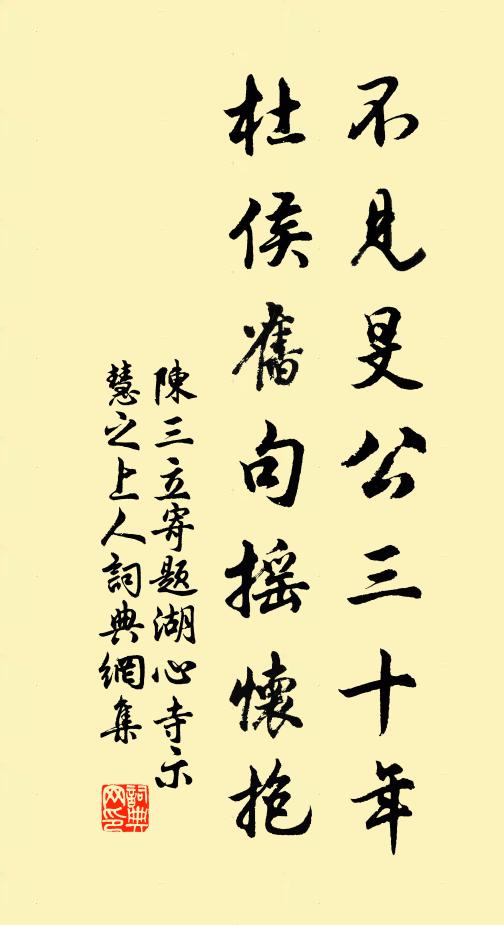 不見旻公三十年
杜侯舊句搖懷抱
陳三立寄題湖心寺示
慧之上人詞典網集
詞典
网印